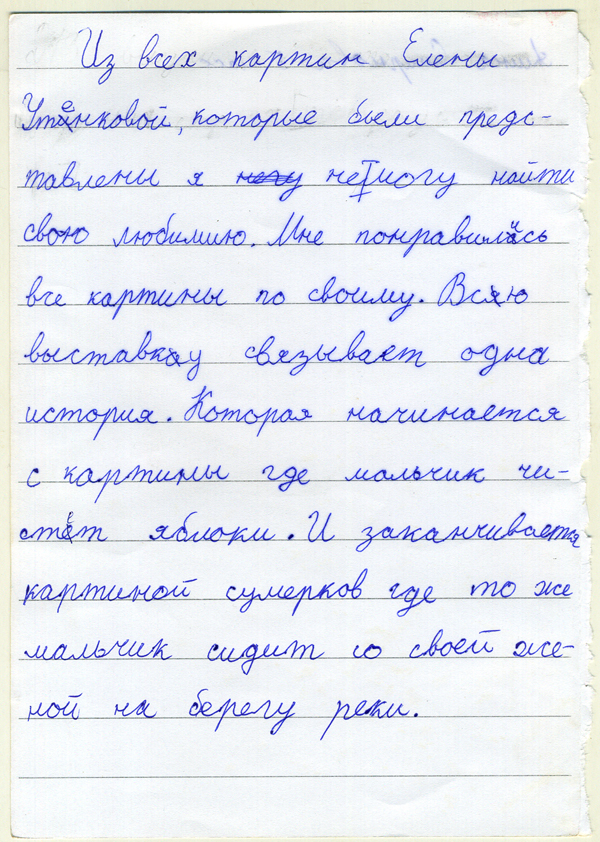 Из всех картин Елены
Утенковой, которые были предс-
тавлены я не могу найти
свою любимию. Мне понравились
все картины по своиму. Всю
выставку связывает одна
история. Которая начинается
с картины где мальчик чи-
стет яблоки. И заканчивается
картиной сумерков где то же
мальчик сидит со своей же-
ной на берегу реки.